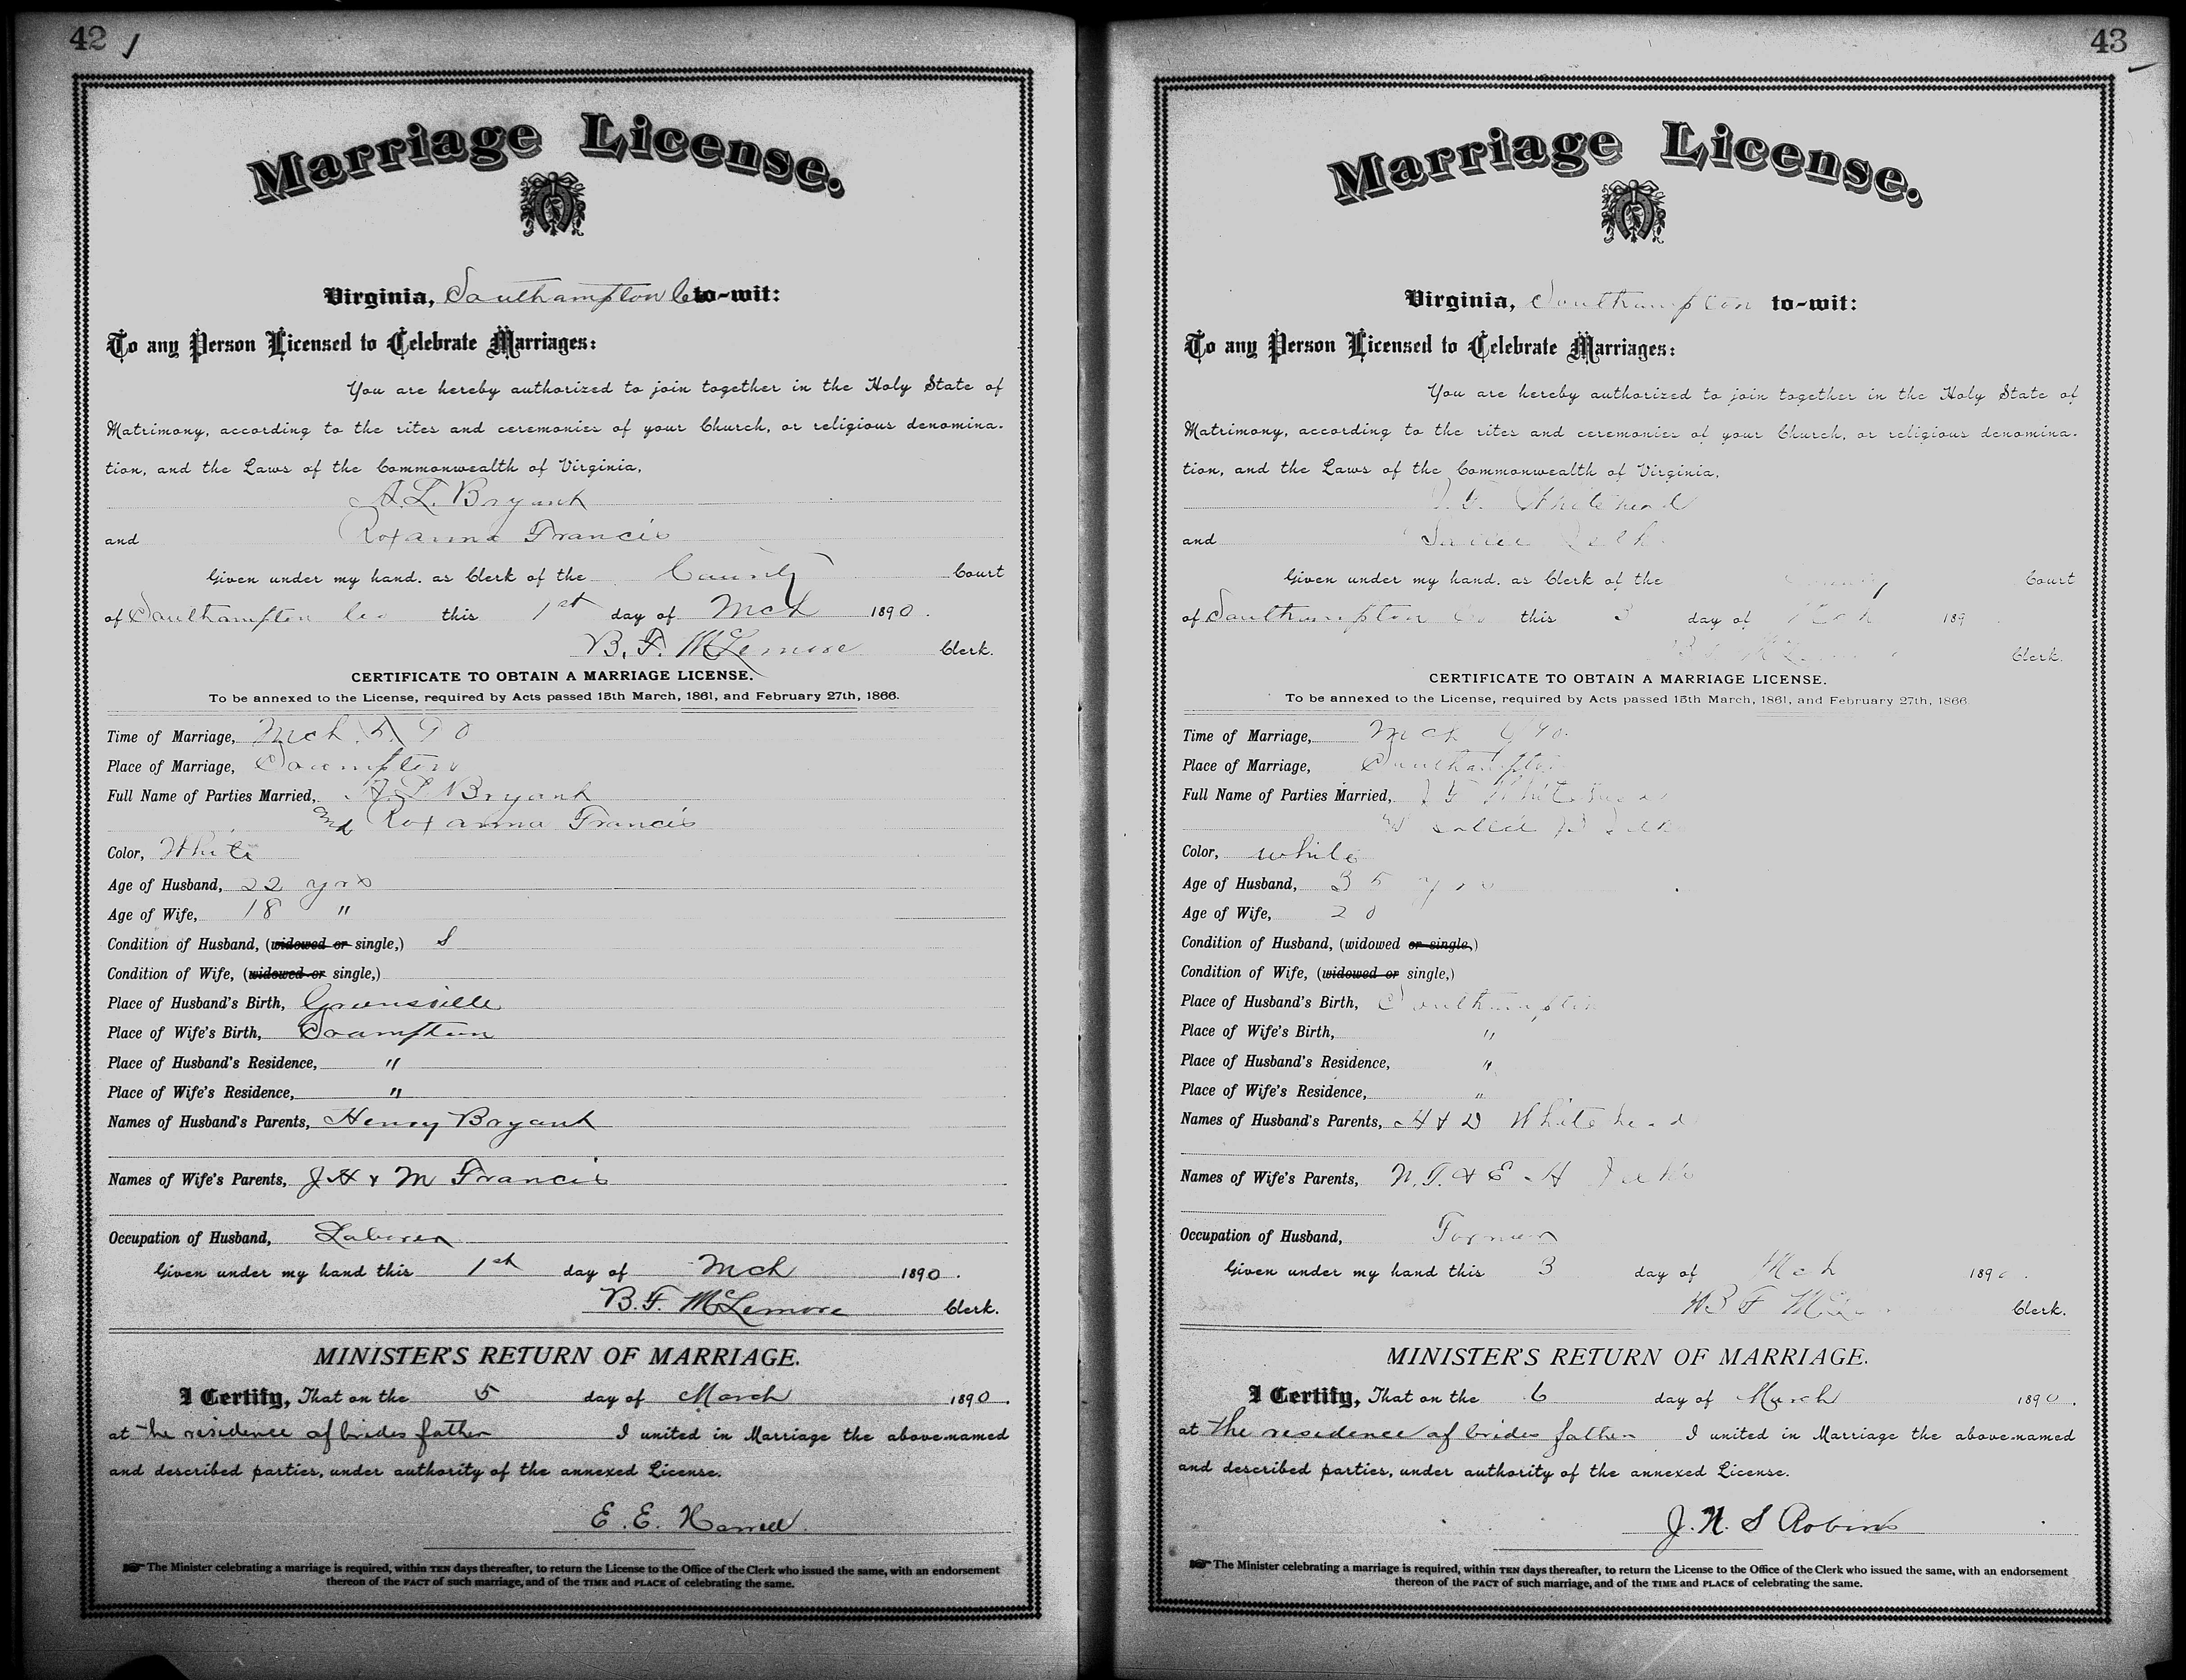 42
Marriage License.
Virginia, Southampton Co to-wit:
To any Person Licensed to Celebrate Marriages:
You are hereby authorized to join together in the Holy State of
Matrimony, according to the rites and ceremonies of your Church, or religious denomina-
tion, and the Laws of the Commonwealth of Virginia,
A. L. Bryant
and Roxanna Francis
Given under my hand, as Clerk of the County Court
of Southampton Co this 1st day of Mch 1890.
B. F. McLemore Clerk.
CERTIFICATE TO OBTAIN A MARRIAGE LICENSE.
To be annexed to the License, required by Acts passed 15th March, 1861, and February 27th, 1866.
Time of Marriage, Mch 5, 90
Place of Marriage, Soampton
Full Name of Parties Married, A. L Bryant
and Roxanna Francis
Color, White
Age of Husband, 22 yrs
Age of Wife, 18 "
Condition of Husband, (widowed or single,) S
Condition of Wife, (widowed or single,)
Place of Husband's Birth, Greensville
Place of Wife's Birth, Soampton
Place of Husband's Residence, "
Place of Wife's Residence, "
Names of Husband's Parents, Henry Bryant
Names of Wife's Parents, J H & M Francis
Occupation of Husband, Laborer
Given under my hand this 1st day of Mch 1890.
B. F. McLemore Clerk.
MINISTER'S RETURN OF MARRIAGE.
I Certify, That on the 5 day of March 1890.
at the residence of brides father I united in Marriage the above-named
and described parties, under authority of the annexed License.
E. E. Harrell
The Minister celebrating a marriage is required, within TEN days thereafter, to return the License to the Office of the Clerk who issued the same, with an endorsement
thereon of the FACT of such marriage, and of the TIME and PLACE of celebrating the same.
43
Marriage License.
Virginia, Southampton to-wit:
To any Person Licensed to Celebrate Marriages:
You are hereby authorized to join together in the Holy State of
Matrimony, according to the rites and ceremonies of your Church, or religious denomina-
tion, and the Laws of the Commonwealth of Virginia,
Whitehead
and Sallie
Given under my hand, as Clerk of the County Court
of Southampton Co this 3 day of Mch 189
B F McL Clerk.
CERTIFICATE TO OBTAIN A MARRIAGE LICENSE.
To be annexed to the License, required by Acts passed 15th March, 1861, and February 27th, 1866
Time of Marriage, Mch 6/90.
Place of Marriage, Southampton
Full Name of Parties Married, Whitehead
Sallie
Color, white
Age of Husband, 35 yrs
Age of Wife, 20
Condition of Husband, (widowed or single,)
Condition of Wife, (widowed or single,)
Place of Husband's Birth, Southampton
Place of Wife's Birth, "
Place of Husband's Residence, "
Place of Wife's Residence, "
Names of Husband's Parents, H & D Whitehead
Names of Wife's Parents, N. T. & E H
Occupation of Husband, Farmer
Given under my hand this 3 day of Mch 1890.
B F McL Clerk.
MINISTER'S RETURN OF MARRIAGE.
I Certify, That on the 6 day of March 1890.
at the residence of brides father I united in Marriage the above-named
and described parties, under authority of the annexed License.
J. N. S Robins
The Minister celebrating a marriage is required, within TEN days thereafter, to return the License to the Office of the Clerk who issued the same, with an endorsement
thereon of the FACT of such marriage, and of the TIME and PLACE of celebrating the same.